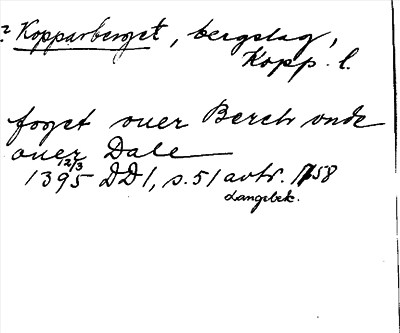 ? Kopparberget, bergslag,
Kopp. l.
foget ouer Berch vnde
ouer Dale
1395 12/3 DD1, s. 51 avtr. 1758
Langebek.